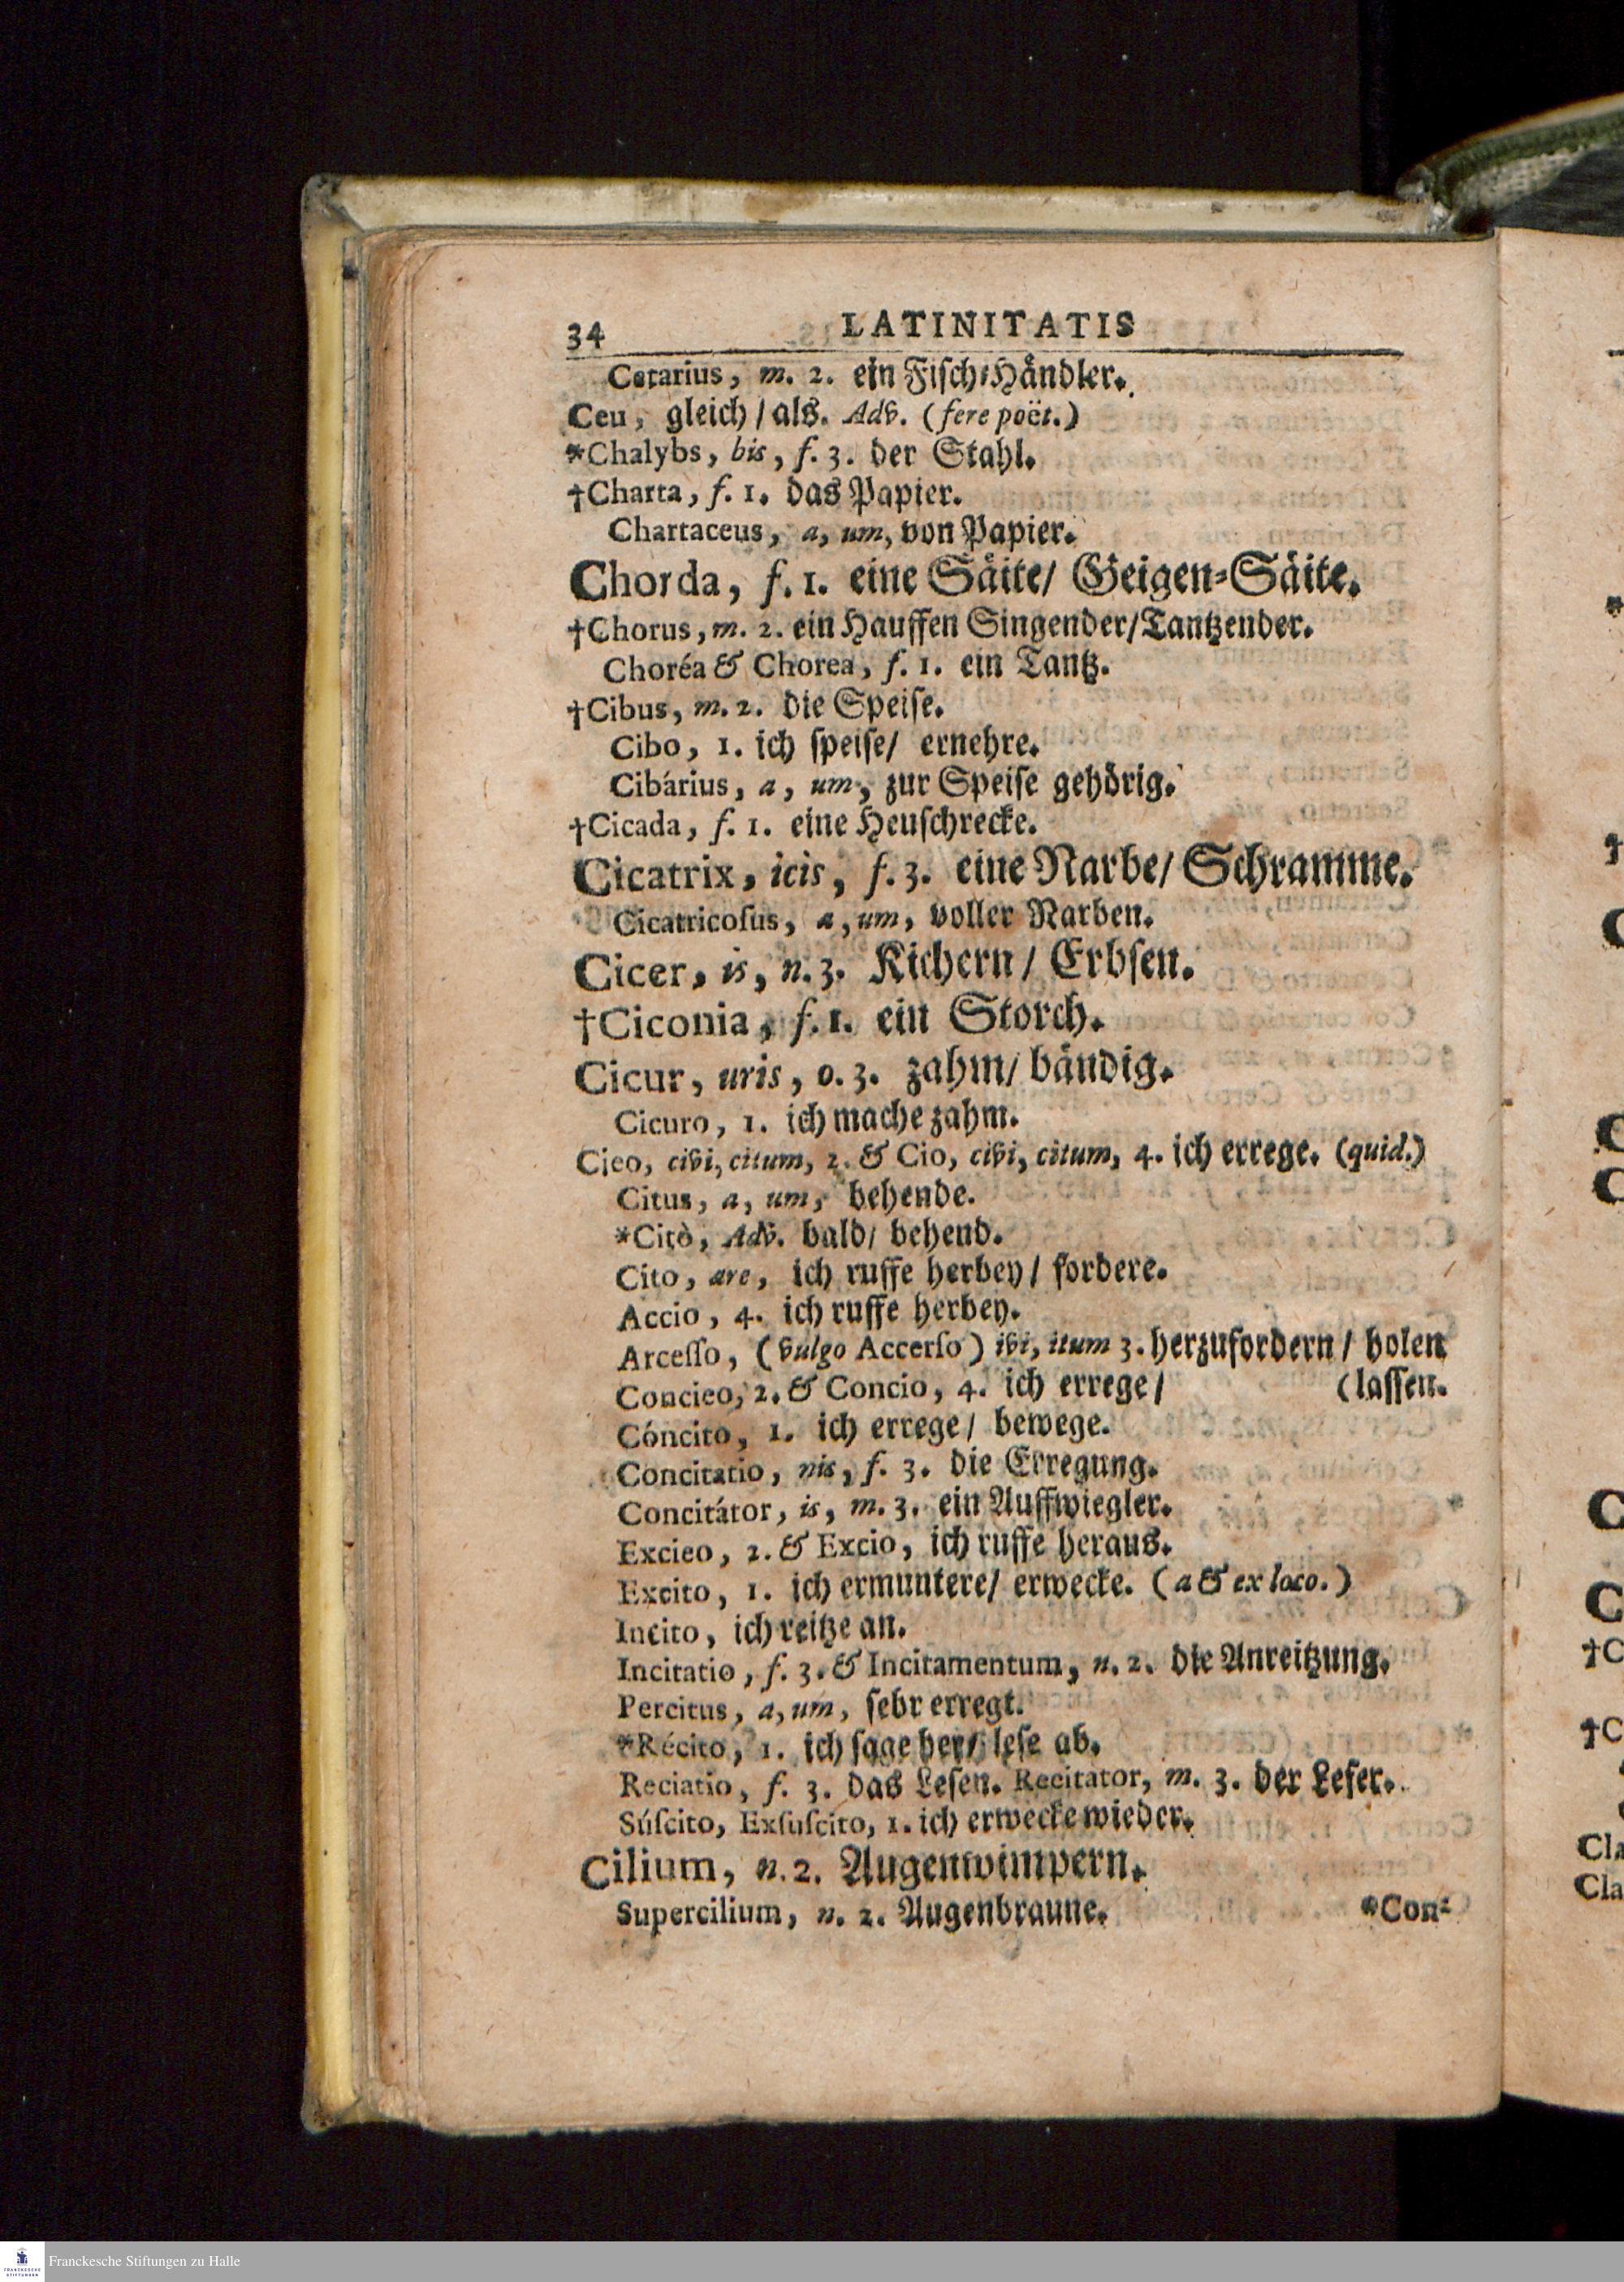 34 LATINITATIS
Cetarius, m. 2. ein Fisch-Händler.
Ceu, gleich / als. Adv. (fere poët.)
*Chalybs, bis, f. 3. der Stahl.
†Charta, f. 1. das Papier.
Chartaceus, a, um, von Papier.
Chorda, f. 1. eine Säite / Geigen-Säite.
†Chorus, m. 2. ein Hauffen Singender / Tantzender.
Choréa & Chorea, f. 1. ein Tantz.
†Cibus, m. 2. die Speise.
Cibo, 1. ich speise / ernehre.
Cibárius, a, um, zur Speise gehörig.
†Cicada, f. 1. eine Heuschrecke.
Cicatrix, icis, f. 3. eine Narbe / Schramme.
Cicatricoſus, a, um, voller Narben.
Cicer, is, n. 3. Kichern / Erbsen.
†Ciconia, f. 1. ein Storch.
Cicur, uris, o. 3. zahm / bändig.
Cicuro, 1. ich mache zahm.
Cieo, civi, citum, 2. & Cio, civi, citum, 4. ich errege. (quid.)
Citus, a, um, behende.
*Citò, Adv. bald / behend.
Cito, are, ich ruffe herbey / fordere.
Accio, 4. ich ruffe herbey.
Arceſſo, (vulgo Accerſo) ivi, itum 3. herzufordern / holen
Concieo, 2. & Concio, 4. ich errege / (lassen.
Cóncito, 1. ich errege / bewege.
Concitatio, nis, f. 3. die Erregung.
Concitátor, is, m. 3. ein Auffwiegler.
Excieo, 2. & Excio, ich ruffe heraus.
Excito, 1. ich ermuntere / erwecke. (a & ex loco.)
Incito, ich reitze an.
Incitatio, f. 3. & Incitamentum, n. 2. die Anreitzung.
Percitus, a, um, sehr erregt.
*Récito, 1. ich sage her / lese ab.
Reciatio, f. 3. das Lesen. Recitator, m. 3. der Leser.
Súſcito, Exſuſcito, 1. ich erwecke wieder.
Cilium, n. 2. Augenwimpern.
Supercilium, n. 2. Augenbraune. *Con-
C
C
C
C
C
†C
†C
Cla
Cla
Franckesche Stiftungen zu Halle
FRANCKESCHE
STIFTUNGEN